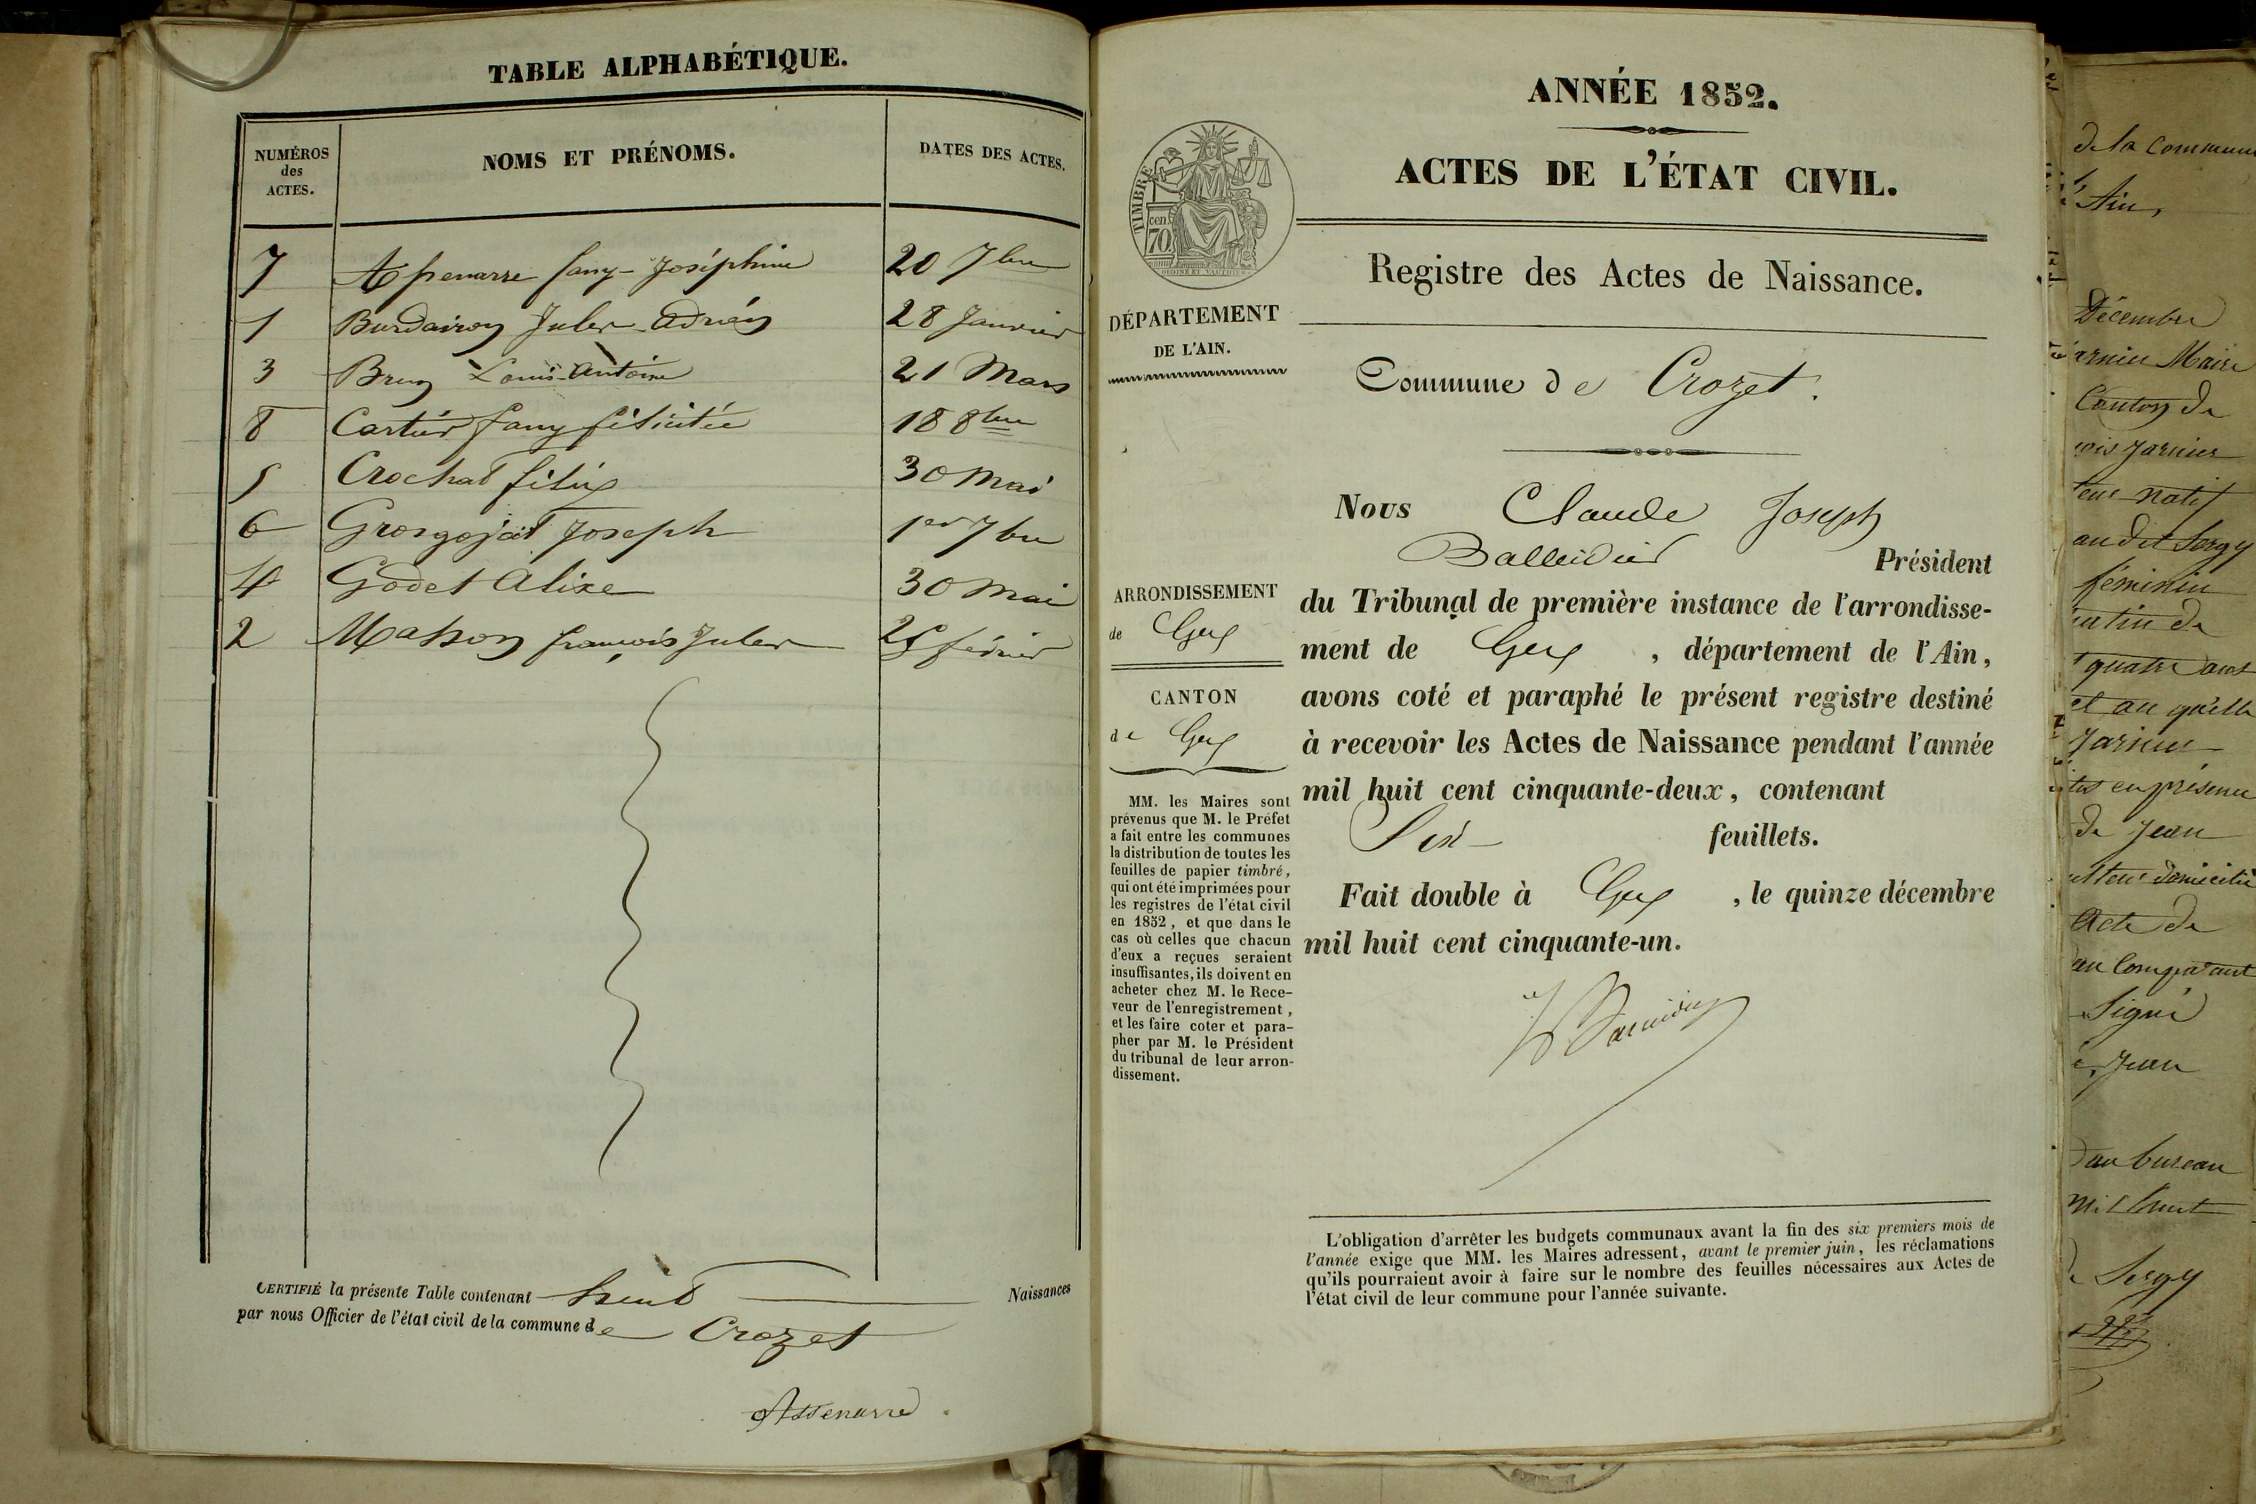 TABLE ALPHABÉTIQUE.
NUMÉROS des ACTES.
NOMS ET PRÉNOMS.
DATES DES ACTES.
7 Assenarre fany-Joséphine 20 7bre
1 Burdairon Jules-Adrien 28 Janvier
3 Brun Louis-Antoine 21 Mars
8 Cartier fany félicitée 18 8bre
5 Crochat félix 30 Mai
6 Grosgojat Joseph 1er 7bre
4 Godet Alixe 30 Mai
2 Masson françois Jules 25 février
CERTIFIÉ la présente Table contenant huit Naissances
par nous Officier de l'état civil de la commune de Crozet
Assenarre
ANNÉE 1852.
ACTES DE L'ÉTAT CIVIL.
TIMBRE
70 cen.
Registre des Actes de Naissance.
DÉPARTEMENT
DE L'AIN.
Commune de Crozet.
ARRONDISSEMENT
de Gex
CANTON
de Gex
MM. les Maires sont
prévenus que M. le Préfet
a fait entre les communes
la distribution de toutes les
feuilles de papier timbré,
qui ont été imprimées pour
les registres de l'état civil
en 1852, et que dans le
cas où celles que chacun
d'eux a reçues seraient
insuffisantes, ils doivent en
acheter chez M. le Rece-
veur de l'enregistrement,
et les faire coter et para-
pher par M. le Président
du tribunal de leur arron-
dissement.
Nous Claude Joseph
Balleidier Président
du Tribunal de première instance de l'arrondisse-
ment de Gex, département de l'Ain,
avons coté et paraphé le présent registre destiné
à recevoir les Actes de Naissance pendant l'année
mil huit cent cinquante-deux, contenant
Six feuillets.
Fait double à Gex, le quinze décembre
mil huit cent cinquante-un.
L'obligation d'arrêter les budgets communaux avant la fin des six premiers mois de
l'année exige que MM. les Maires adressent, avant le premier juin, les réclamations
qu'ils pourraient avoir à faire sur le nombre des feuilles nécessaires aux Actes de
l'état civil de leur commune pour l'année suivante.
de la Commune
l'Ain,
Décembre
Maire
Canton de
natif
audit Sergy
féminin
de
quatre ans
et en présence
de Jean
domicilié
Acte de
Signé
Jean
au bureau
mil huit
de Sergy